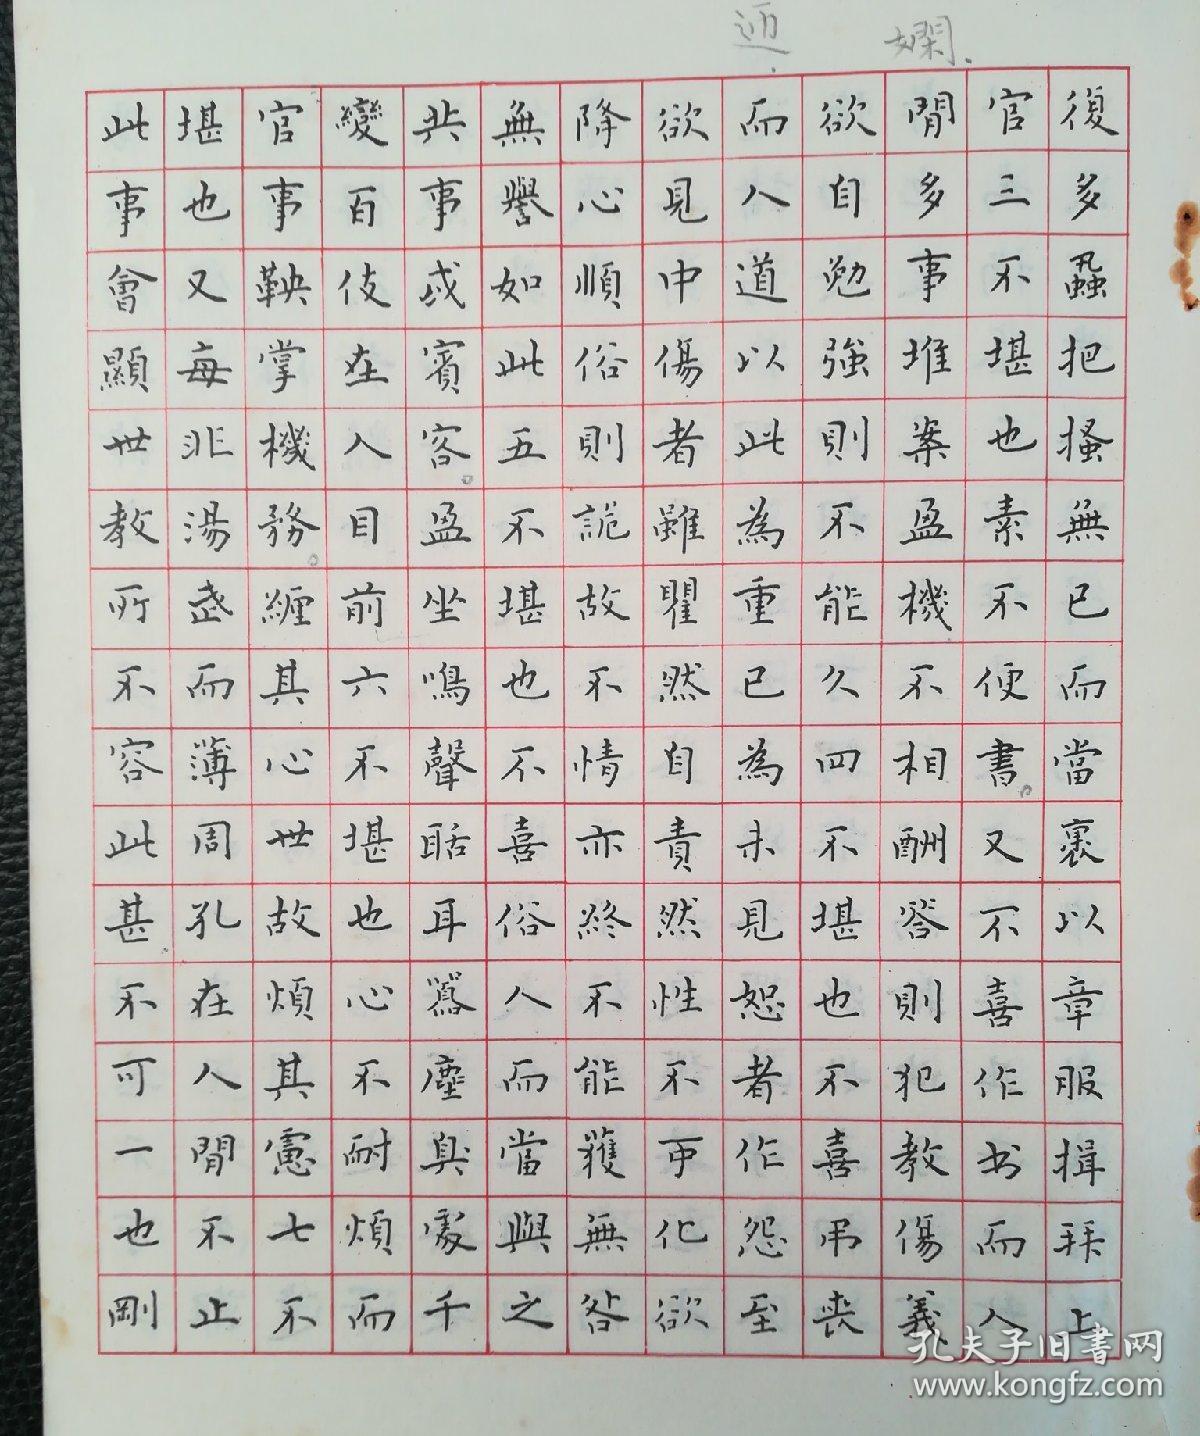 嫻
復多蝨把搔無已而當裹以章服揖拜上
官三不堪也素不便書。又不喜作书而人
閒多事堆案盈機不相酬答則犯教傷義
欲自勉強則不能久四不堪也不喜弔喪
而人道以此為重已為未見恕者作怨至
欲見中傷者雖瞿然自責然性不可化欲
降心順俗則詭故不情亦終不能獲無咎
無譽如此五不堪也不喜俗人而當與之
共事或賓客。盈坐鳴聲聒耳囂塵臭處千
變百伎在人目前六不堪也心不耐煩而
官事鞅掌機務。纏其心世故煩其慮七不
堪也又每非湯武而薄周孔在人閒不止
此事會顯世教所不容此甚不可一也剛
孔夫子旧书网
www.kongfz.com